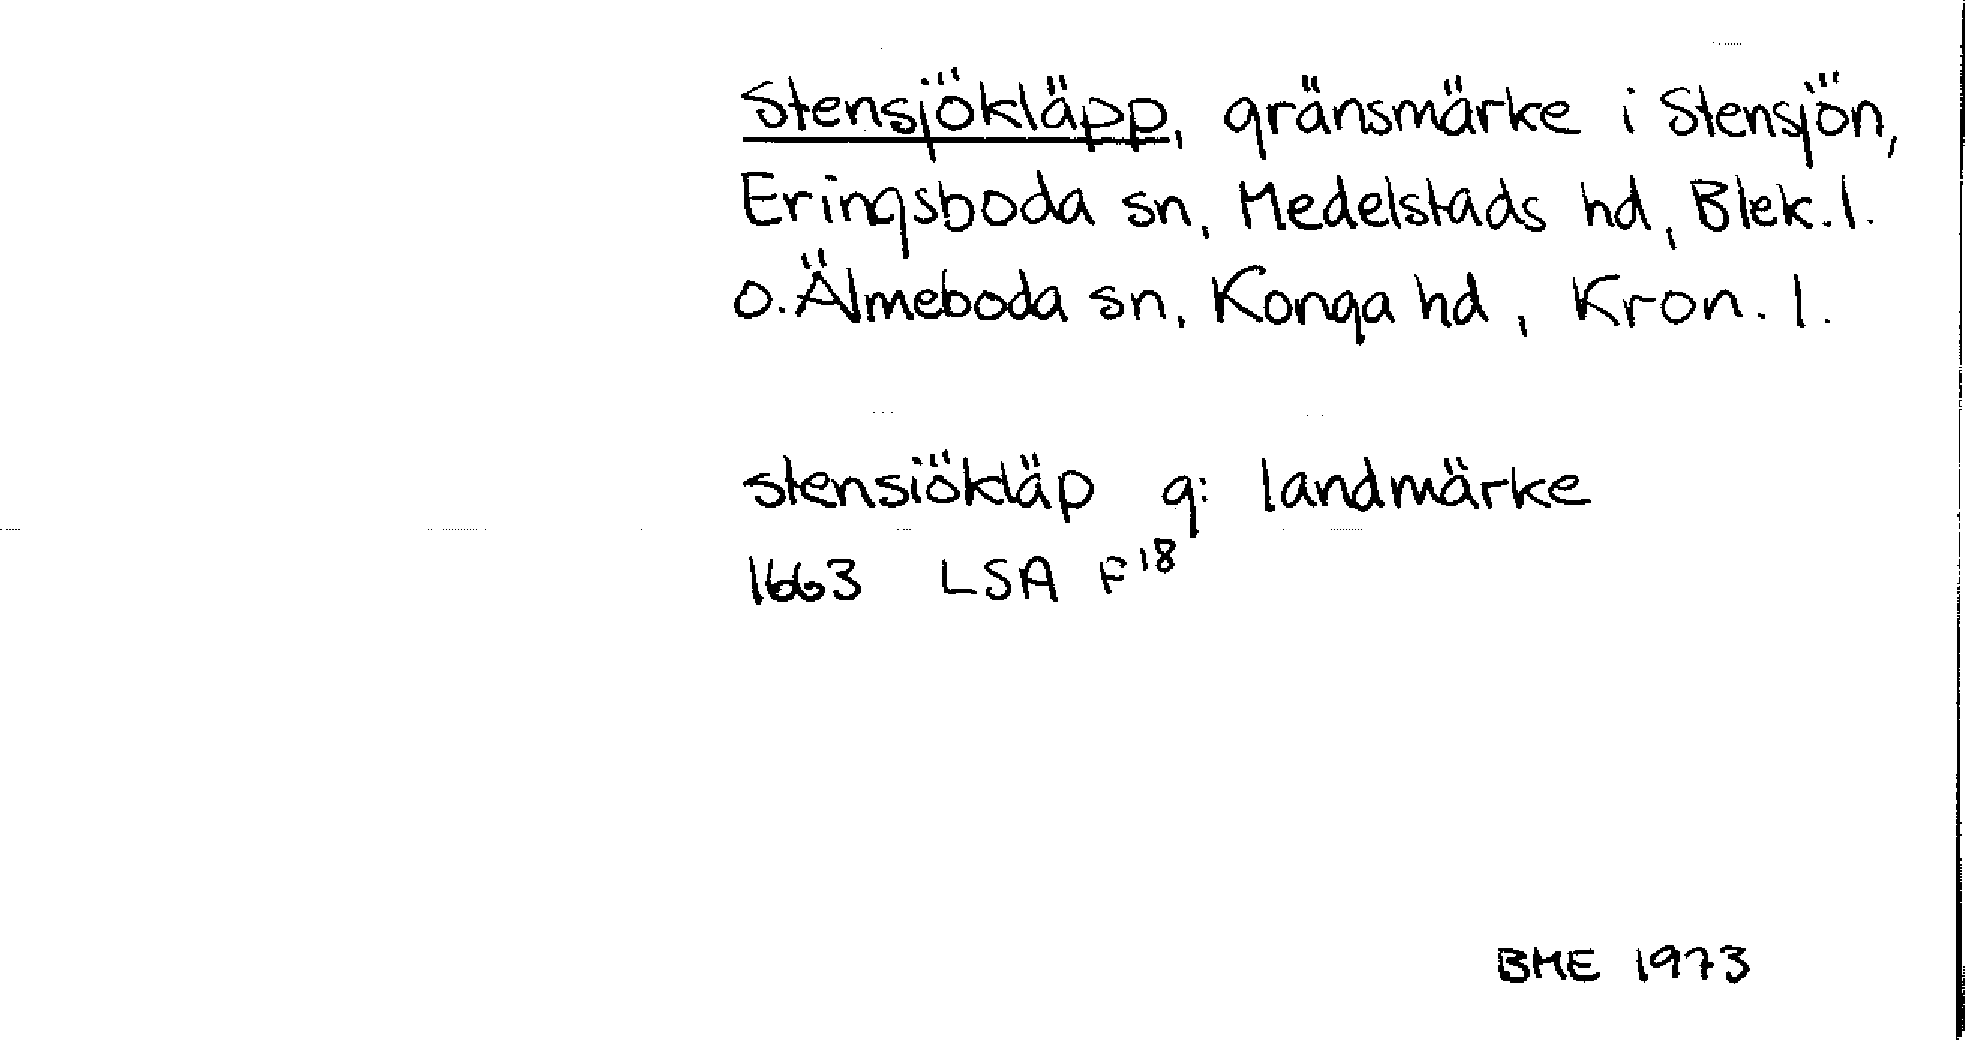 Stensjökläpp, gränsmärke i Stensjön,
Eringsboda sn, Medelstads hd, Blek. l.
o. Älmeboda sn, Konga hd, Kron. l.
stensiökläp g: landmärke
1663 LSA F¹⁸
BME 1973